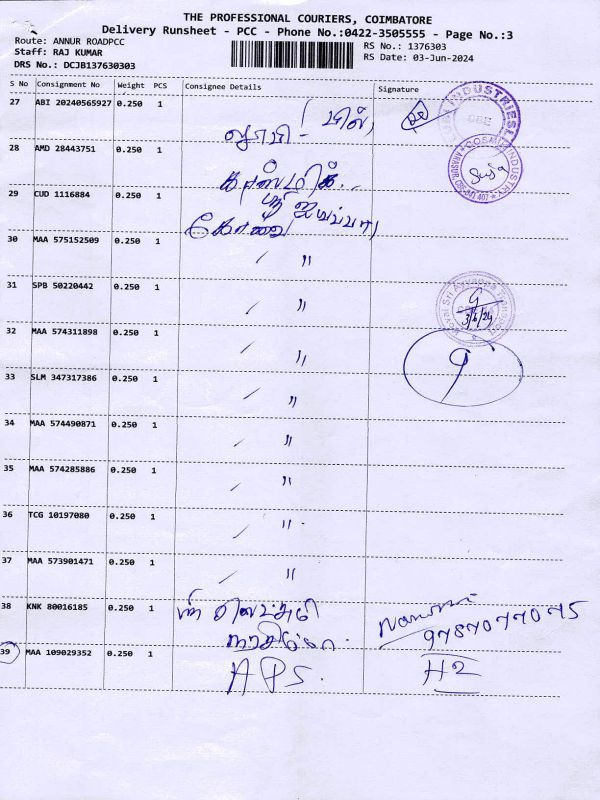 THE PROFESSIONAL COURIERS, COIMBATORE
Delivery Runsheet - PCC - Phone No.:0422-3505555 - Page No.:3
Route: ANNUR ROADPCC
Staff: RAJ KUMAR
DRS No.: DCJB137630303
RS No.: 1376303
RS Date: 03-Jun-2024
S No Consignment No Weight PCS Consignee Details Signature
27 ABI 20240565927 0.250 1
28 AMD 28443751 0.250 1
29 CUD 1116884 0.250 1
30 MAA 575152509 0.250 1 "
31 SPB 50220442 0.250 1 "
3/6/24
32 MAA 574311898 0.250 1 "
33 SLM 347317386 0.250 1 "
34 MAA 574490871 0.250 1 "
35 MAA 574285886 0.250 1 "
36 TCG 10197080 0.250 1 "
37 MAA 573901471 0.250 1 "
38 KNK 80016185 0.250 1
9787077075
39 MAA 109029352 0.250 1 APS. H2